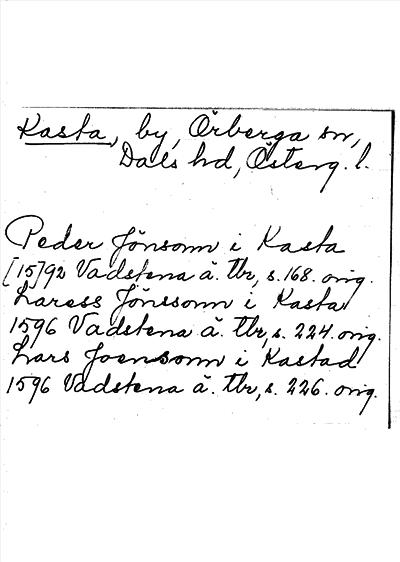 Kasta, by, Örberga sn,
Dals hd, Österg. l.
Peder Jönsonn i Kasta
[15]92 Vadstena ä. tbr, s. 168. orig.
Laress Jönssonn i Kasta
1596 Vadstena ä. tbr, s. 224. orig.
Lars Joensonn i Kastad
1596 Vadstena ä. tbr, s. 226. orig.